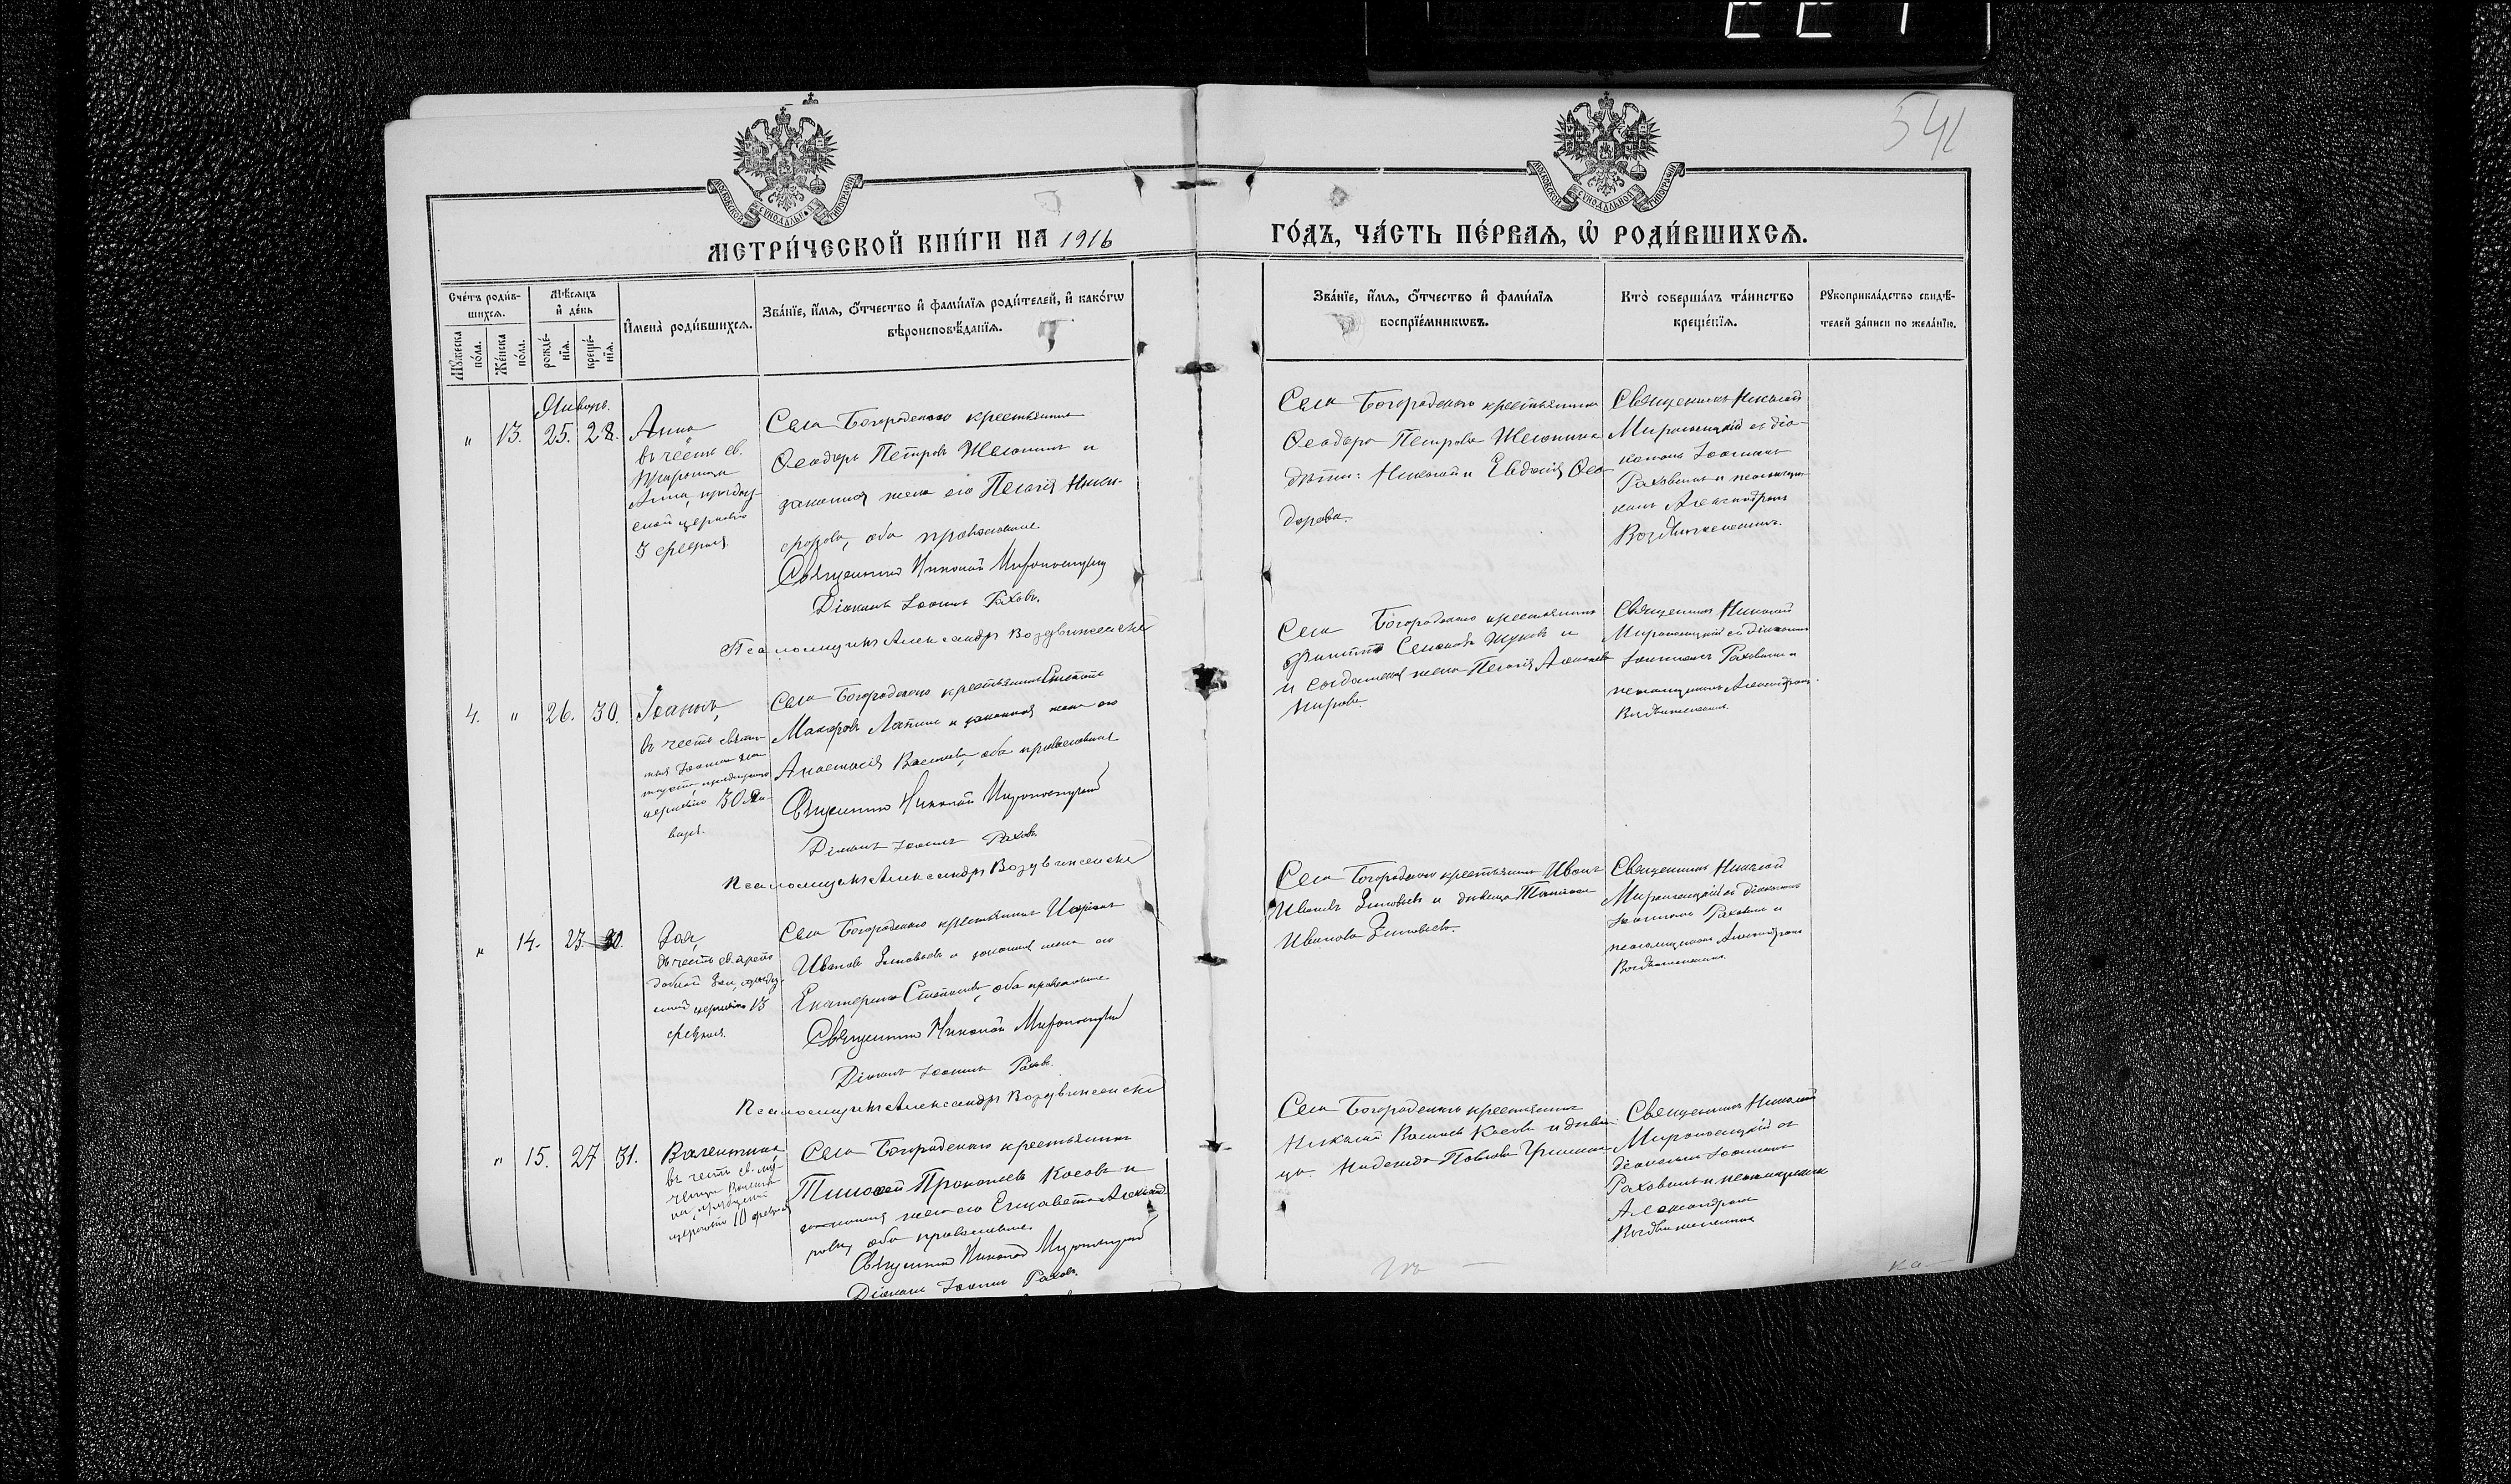 541
МОСКОВСКОЙ СѴНОДАЛЬНОЙ ТИПОГРАФІИ
МОСКОВСКОЙ СѴНОДАЛЬНОЙ ТИПОГРАФІИ
МЕТРИ́ЧЕСКОЙ КНИ́ГИ НА 1916
ГО́ДЪ, ЧА́СТЬ ПЕ́РВАЯ, Ѡ РОДИ́ВШИХСЯ.
Сче́тъ роди́в-
шихся.
Мꙋ́жеска
по́ла.
Же́нска
по́ла.
Мѣ́сяцъ
и҆ де́нь
рожде́-
нїя.
креще́-
нїя.
И҆мена̀ роди́вшихся.
Зва́нїе, и҆́мя, ѻ҆́тчество и҆ фами́лїя роди́телей, и҆ како́гѡ
вѣроисповѣ́данїя.
Зва́нїе, и҆́мя, ѻ҆́тчество и҆ фами́лїя
воспрїе́мникѡвъ.
Кто̀ соверша́лъ та́инство
креще́нїя.
Рꙋкоприкла́дство свидѣ́-
телей за́писи по жела́нїю.
Январь.
" 13. 25. 28. Анна
въ честь св.
Пророчицы
Анны, праздну-
емой церковію
3 февраля.
Села Богородскаго крестьянинъ
Ѳеодоръ Петровъ и
законная жена его Пелагія Ники-
форова, оба православные.
Священникъ Николай Мироносицкій
Діаконъ Іоаннъ Раховъ.
Псаломщикъ Александръ Воздвиженскій
Села Богородскаго крестьянина
Ѳеодора Петрова
дѣти: Николай и Евдокія Ѳео-
дорова.
Священникъ Николай
Мироносицкій съ діа-
кономъ Іоанномъ
Раховымъ и псаломщи-
комъ Александромъ
Воздвиженскимъ.
4. " 26. 30. Іоаннъ,
въ честь святи-
теля Іоанна Зла-
тоуста, празднуемаго
церковію 30 Ян-
варя.
Села Богородскаго крестьянинъ Степанъ
Макаровъ Лапинъ и законная жена его
Анастасія Васильева, оба православные
Священникъ Николай Мироносицкій
Діаконъ Іоаннъ Раховъ
Псаломщикъ Александръ Воздвиженскій
Села Богородскаго крестьянинъ
Филиппъ Семеновъ Жуковъ и
и солдатская жена Пелагія
Священникъ Николай
Мироносицкій съ діакономъ
Іоанномъ Раховымъ и
псаломщикомъ Александромъ
Воздвиженскимъ.
" 14. 23. 30. Зоя,
въ честь св. препо-
добной Зои, праздну-
емой церковію 13
февраля.
Села Богородскаго крестьянинъ
Ивановъ Зиновьевъ и законная жена его
Екатерина Степанова, оба православные
Священникъ Николай Мироносицкій
Діаконъ Іоаннъ Раховъ.
Псаломщикъ Александръ Воздвиженскій
Села Богородскаго крестьянинъ Иванъ
Ивановъ Зиновьевъ и дѣвица
Иванова Зиновьева.
Священникъ Николай
Мироносицкій съ діакономъ
Іоанномъ Раховымъ и
псаломщикомъ Александромъ
Воздвиженскимъ.
" 15. 27 31. Валентина
въ честь св. му-
ченицы Валенти-
ны, празднуемой
церковію 10 февраля
Села Богородскаго крестьянинъ
Тимоѳей Прокопьевъ Косовъ и
законная жена его Елизавета Александ-
рова, оба православные.
Священникъ Николай Мироносицкій
Діаконъ Іоаннъ Раховъ.
Села Богородскаго крестьянинъ
Николай Васильевъ Косовъ и дѣви-
ца Надежда Павлова
Священникъ Николай
Мироносицкій съ
діакономъ Іоанномъ
Раховымъ и псаломщикомъ
Александромъ
Воздвиженскимъ